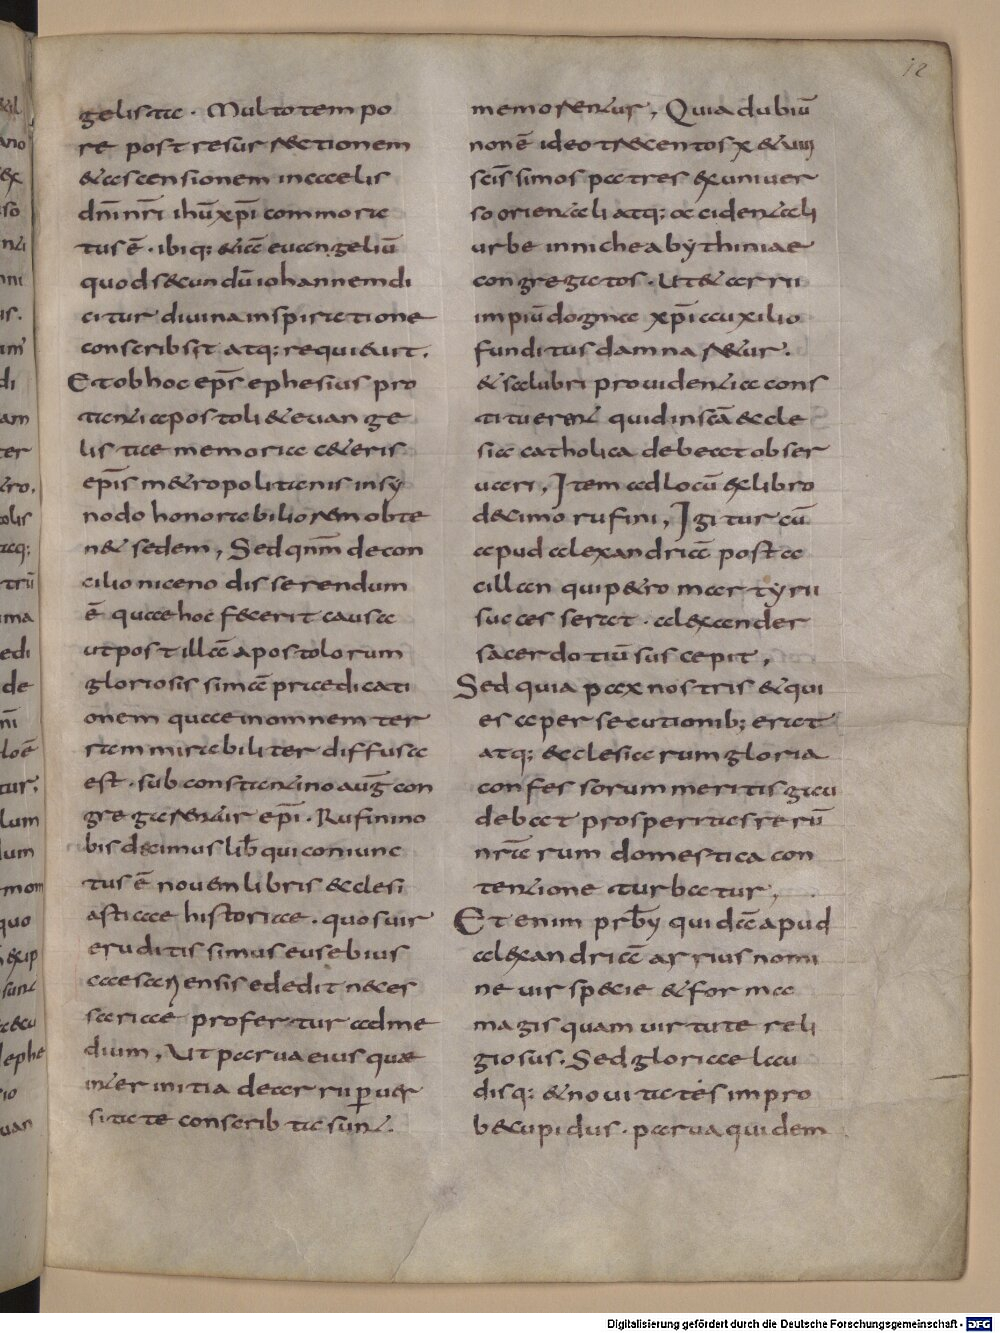 12
gelista. Multo tempo
re post resurrectionem
& ascensionem in caelis
dn̄i nr̄i ihū xp̄i commora
tus ē. ibiq; & iā euangeliū
quod secundū iohannem di
citur diuina inspiratione
conscribsit atq; requieuit.
Et ob hoc ep̄s ephesius pro
tanti apostoli & euange
listae memoria ceteris
ep̄is m&ropolitanis in sy
nodo honorabiliorem obte
n& sedem, Sed qnm̄ de con
cilio niceno disserendum
ē quae hoc fecerit causa
ut post illā apostolorum
gloriosissimā praedicati
onem quae in omnem ter
ram mirabiliter diffusa
est. sub constantino auḡ con
gregarentur ep̄i. Rufini no
bis decimus lib̄ qui coniunc
tus ē nouem libris ecclesi
asticae historiae. quos uir
eruditissimus eusebius
caesariensis edidit neces
sariae profertur ad me
dium, Ut parua eius quae
inter initia de arrii peruer
sitate conscrib ta sunt.
memorentur, Quia dubiū
non ē ideo trecentos x & uiii
scīssimos patres ex uniuer
so orientali atq; occidentali
urbe in nichea bythiniae
congregatos. Ut & arrii
impiū dogma xp̄i auxilio
funditus damnaretur.
& salubri prouidentia cons
tituerent quid in scā eccle
sia catholica debeat obser
uari, Item ad locū ex libro
decimo rufini, Igitur cū
apud alexandriā post a
cillan qui petro martyrii
successerat. alexander
sacerdotiū suscepit,
Sed quia pax nostris & qui
es a persecutionib; erat
atq; ecclesiarum gloria
confessorum meritis gau
debat prosperitas rerū
nr̄arum domestica con
tentione turbatur,
Etenim prb̄y quidā apud
alexandriā arrius nomi
ne uir specie & forma
magis quam uirtute reli
giosus. Sed gloriae lau
disq; & nouitatis impro
be cupidus. praua quidem
Digitalisierung gefördert durch die Deutsche Forschungsgemeinschaft - DFG